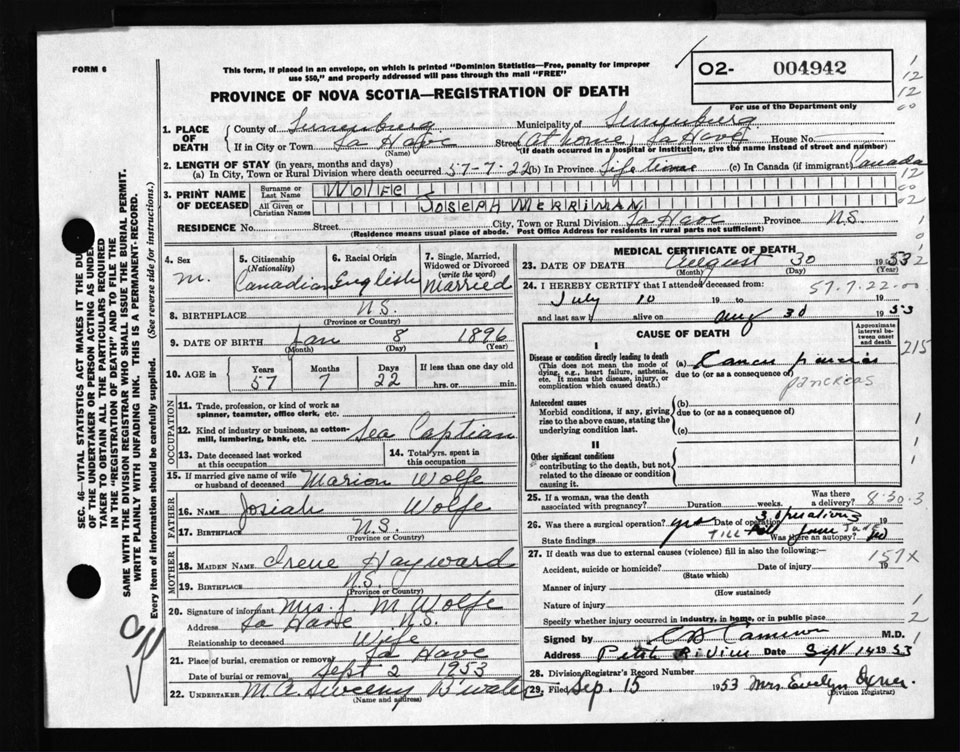 FORM 6
This form, if placed in an envelope, on which is printed "Dominion Statistics—Free, penalty for improper
use $50," and properly addressed will pass through the mail "FREE"
PROVINCE OF NOVA SCOTIA—REGISTRATION OF DEATH
O2- 004942
For use of the Department only
1. PLACE OF DEATH { County of Lunenburg Municipality of Lunenburg
If in City or Town La Have (Name) Street (At home) La Have House No.
(If death occurred in a hospital or institution, give the name instead of street and number)
2. LENGTH OF STAY (in years, months and days)
(a) In City, Town or Rural Division where death occurred 57-7-22 (b) In Province Life time (c) In Canada (if immigrant) Canada
3. PRINT NAME OF DECEASED { Surname or Last Name WOLFE
All Given or Christian Names JOSEPH MERRIMAN
RESIDENCE No. Street City, Town or Rural Division La Have Province N.S.
(Residence means usual place of abode. Post Office Address for residents in rural parts not sufficient)
4. Sex M.
5. Citizenship (Nationality) Canadian
6. Racial Origin English
7. Single, Married, Widowed or Divorced (write the word) Married
8. BIRTHPLACE N.S.
(Province or Country)
9. DATE OF BIRTH Jan 8 1896
(Month) (Day) (Year)
10. AGE in { Years 57 Months 7 Days 22 If less than one day
hrs. or min.
OCCUPATION
11. Trade, profession, or kind of work as
spinner, teamster, office clerk, etc.
12. Kind of industry or business, as cotton-
mill, lumbering, bank, etc. Sea Captian
13. Date deceased last worked
at this occupation
14. Total yrs. spent in
this occupation
15. If married give name of wife
or husband of deceased Marion Wolfe
FATHER
16. Name Josiah Wolfe
17. Birthplace N.S.
(Province or Country)
MOTHER
18. MAIDEN NAME Irene Hayward
19. BIRTHPLACE N.S.
(Province or Country)
20. Signature of informant Mrs. J. M Wolfe
Address La Have N.S.
Relationship to deceased Wife
21. Place of burial, cremation or removal La Have
Date of burial or removal Sept 2 1953
22. UNDERTAKER M.A. Sweeny B'water
(Name and address)
MEDICAL CERTIFICATE OF DEATH
23. DATE OF DEATH August 30 1953
(Month) (Day) (Year)
24. I HEREBY CERTIFY that I attended deceased from: 57.7.22.00
July 10 19 to 19
and last saw alive on Aug 30 1953
CAUSE OF DEATH
Approximate interval between onset and death
I
Disease or condition directly leading to death
(This does not mean the mode of
dying, e.g., heart failure, asthenia,
etc. It means the disease, injury, or
complication which caused death.)
(a) Cancer
due to (or as a consequence of)
pancreas
Antecedent causes
Morbid conditions, if any, giving
rise to the above cause, stating the
underlying condition last.
(b)
due to (or as a consequence of)
(c)
II
Other significant conditions
contributing to the death, but not
related to the disease or condition
causing it.
25. If a woman, was the death
associated with pregnancy? Duration weeks. Was there
a delivery? 8.30.3
26. Was there a surgical operation? yes Date of operation 3 operations 19
State findings Was there an autopsy? No
27. If death was due to external causes (violence) fill in also the following:— 157X
Accident, suicide or homicide? Date of injury 19
(State which)
Manner of injury
(How sustained)
Nature of injury
Specify whether injury occurred in industry, in home, or in public place
Signed by C B Cameron M.D.
Address Petite Riviere Date Sept 14 1953
28. Division Registrar's Record Number
29. Filed Sep. 15 1953 Mrs Evelyn Oxner
(Division Registrar)
SEC. 46—VITAL STATISTICS ACT MAKES IT THE DU
OF THE UNDERTAKER OR PERSON ACTING AS UNDER
TAKER TO OBTAIN ALL THE PARTICULARS REQUIRED
IN THE "REGISTRATION OF DEATH" AND TO FILE THE
SAME WITH THE DIVISION REGISTRAR WHO SHALL ISSUE THE BURIAL PERMIT.
WRITE PLAINLY WITH UNFADING INK. THIS IS A PERMANENT RECORD.
Every item of information should be carefully supplied. (See reverse side for instructions.)